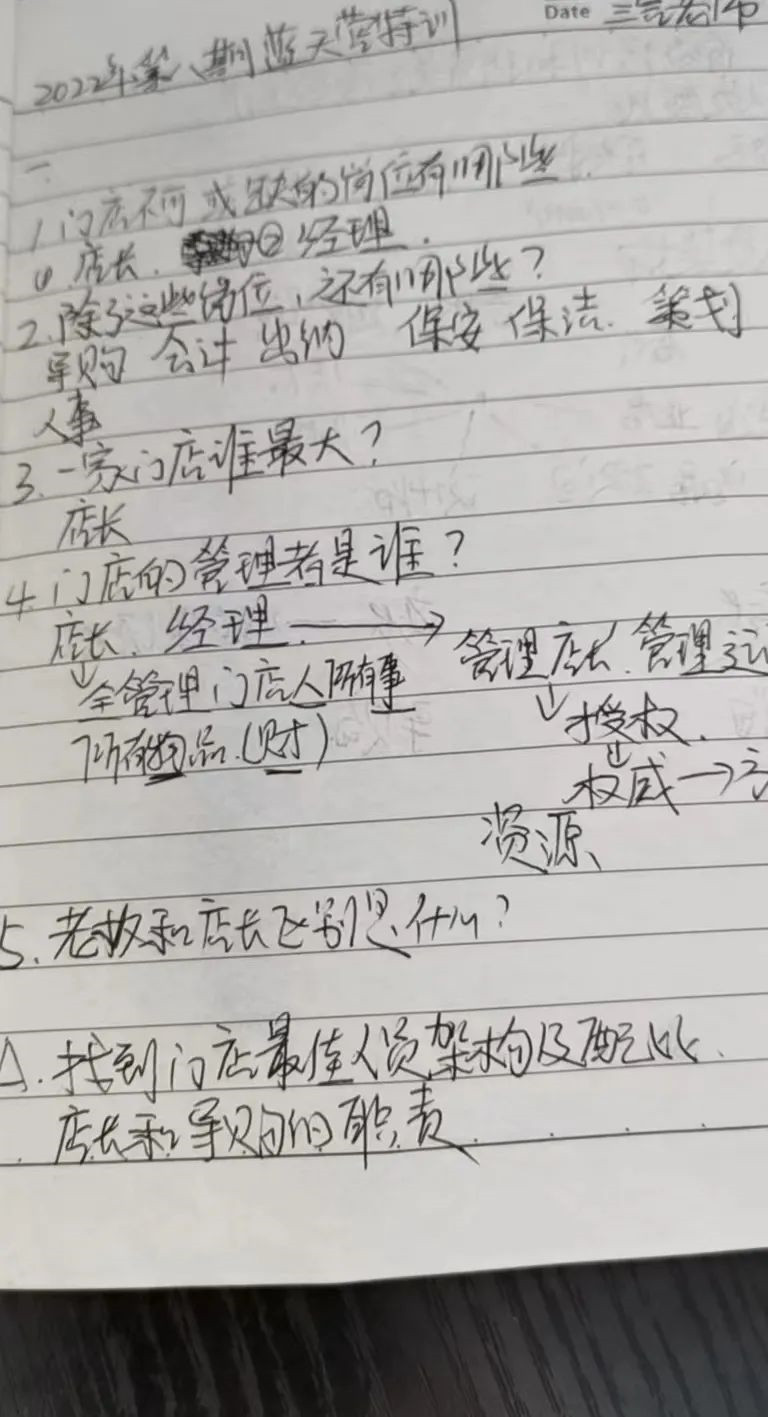 Date
2022年第八期蓝天营特训
一
1 门店不可或缺的岗位有哪些
① 店长. ② 经理.
2. 除了这些岗位,还有哪些?
导购 会计 出纳 保安 保洁. 策划
人事
3. 一家门店谁最大?
店长
4 门店的管理者是谁?
店长. 经理. → 管理店长. 管理
↓ 全管理门店人所有事 ↓授权.
所有物品.(财) ↓
权威→
资源、
5. 老板和店长区别是什么?
△. 找到门店最佳人员架构及配比.
店长和导购的职责.